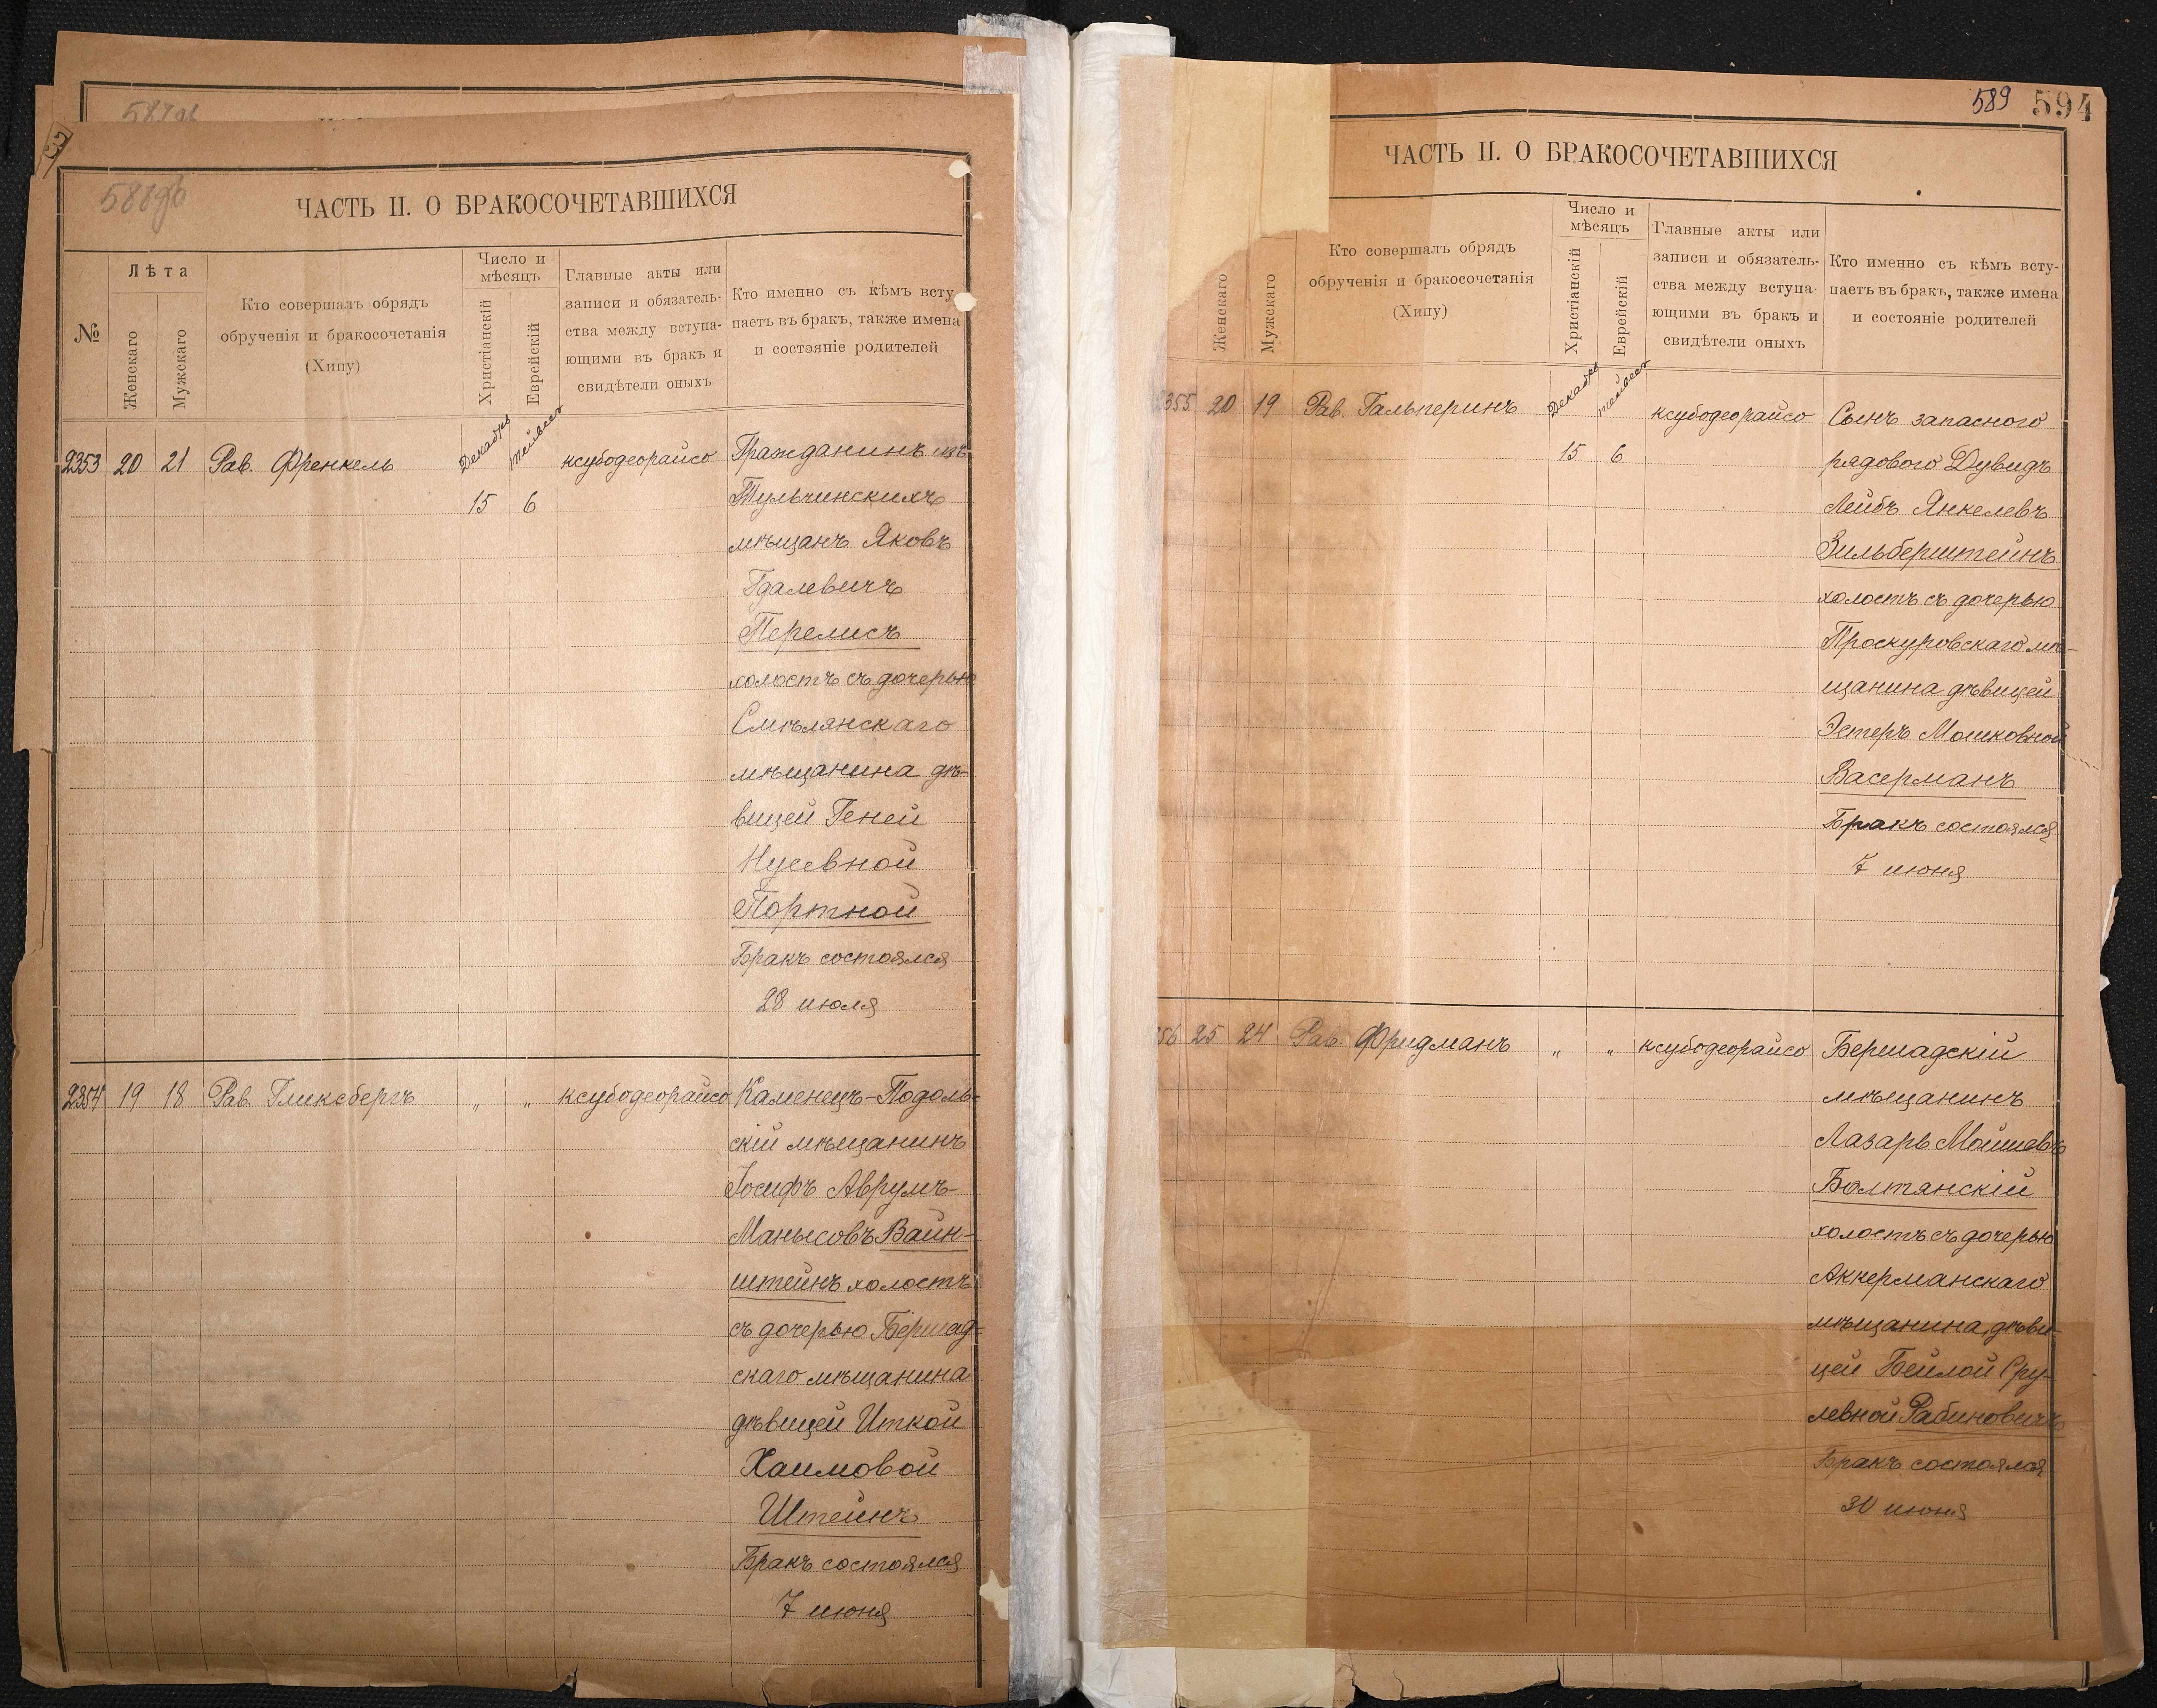 587об
588об
ЧАСТЬ II. О БРАКОСОЧЕТАВШИХСЯ
№
Лѣта
Женскаго
Мужскаго
Кто совершалъ обрядъ
обрученія и бракосочетанія
(Хипу)
Число и
мѣсяцъ
Христіанскій
Еврейскій
Главные акты или
записи и обязатель-
ства между вступа-
ющими въ бракъ и
свидѣтели оныхъ
Кто именно съ кѣмъ всту-
паетъ въ бракъ, также имена
и состояніе родителей
2353 20 21 Рав. Френкель Декабрь Тейвес ксубодеорайсо Гражданинъ изъ
15 6 Тульчинскихъ
мѣщанъ Яковъ
Гдалевичъ
Перелисъ
холостъ съ дочерью
Смѣлянскаго
мѣщанина дѣ-
вицей Геней
Нусевной
Портной
Бракъ состоялся
28 июля
2354 19 18 Рав. Гликсбергъ „ „ ксубодеорайсо Каменецъ-Подоль-
скій мѣщанинъ
Іосифъ Аврумъ-
Манысовъ Вайн-
штейнъ холостъ
съ дочерью Бершад-
скаго мѣщанина
дѣвицей Иткой
Хаимовой
Штейнъ
Бракъ состоялся
7 июня
589 594
ЧАСТЬ II. О БРАКОСОЧЕТАВШИХСЯ
Женскаго
Мужскаго
Кто совершалъ обрядъ
обрученія и бракосочетанія
(Хипу)
Число и
мѣсяцъ
Христіанскій
Еврейскій
Главные акты или
записи и обязатель-
ства между вступа-
ющими въ бракъ и
свидѣтели оныхъ
Кто именно съ кѣмъ всту-
паетъ въ бракъ, также имена
и состояніе родителей
2355 20 19 Рав. Гальперинъ Декабрь Тейвес ксубодеорайсо Сынъ запасного
15 6 рядового Дувидъ
Лейбъ Янкелевъ
Зильберштейнъ
холостъ съ дочерью
Проскуровскаго мѣ-
щанина дѣвицей
Эстеръ Мошковной
Васерманъ
Бракъ состоялся
7 июня
56 25 24 Рав. Фридманъ „ „ ксубодеорайсо Бершадскій
мѣщанинъ
Лазарь Мойшевъ
Балтянскій
холостъ съ дочерью
Аккерманскаго
мѣщанина, дѣви-
цей Бейлой Сру-
левной Рабиновичъ
Бракъ состоялся
30 июня